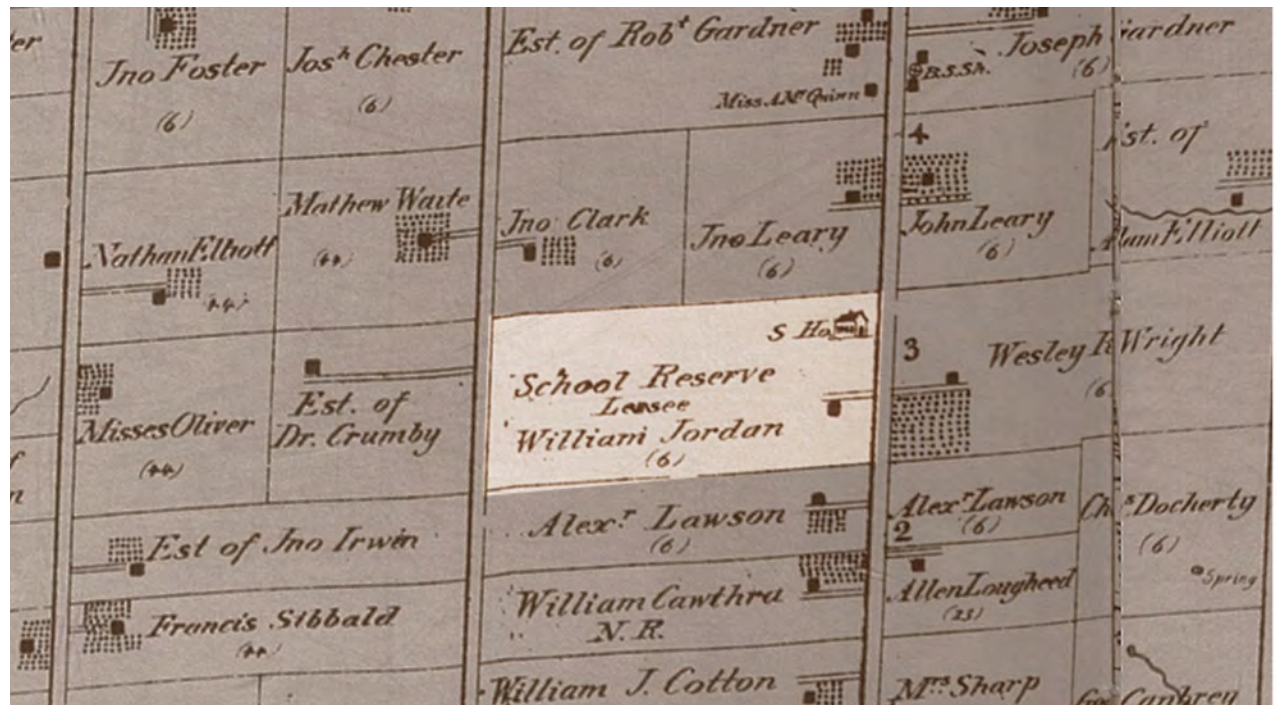 er
Jno Foster
(6)
Josh Chester
(6)
Est. of Robt Gardner
Miss A Mc Quinn
B.S.Sh.
Joseph Gardner
(6)
Nathan Elliott
(44)
Mathew Waite
(44)
Jno Clark
(6)
Jno Leary
(6)
4
John Leary
(6)
Est. of
Elliott
Misses Oliver
(44)
Est. of
Dr. Crumby
S Ho
School Reserve
Lensee
William Jordan
(6)
3
Wesley R Wright
(6
f
n
Est of Jno Irwin
Alexr. Lawson
(6)
Alexr Lawson
(6)
2
Chs Docherty
(6)
Spring
Francis Sibbald
(44)
William Cawthra
N.R.
Allen Lougheed
(25)
William J. Cotton
Mrs Sharp